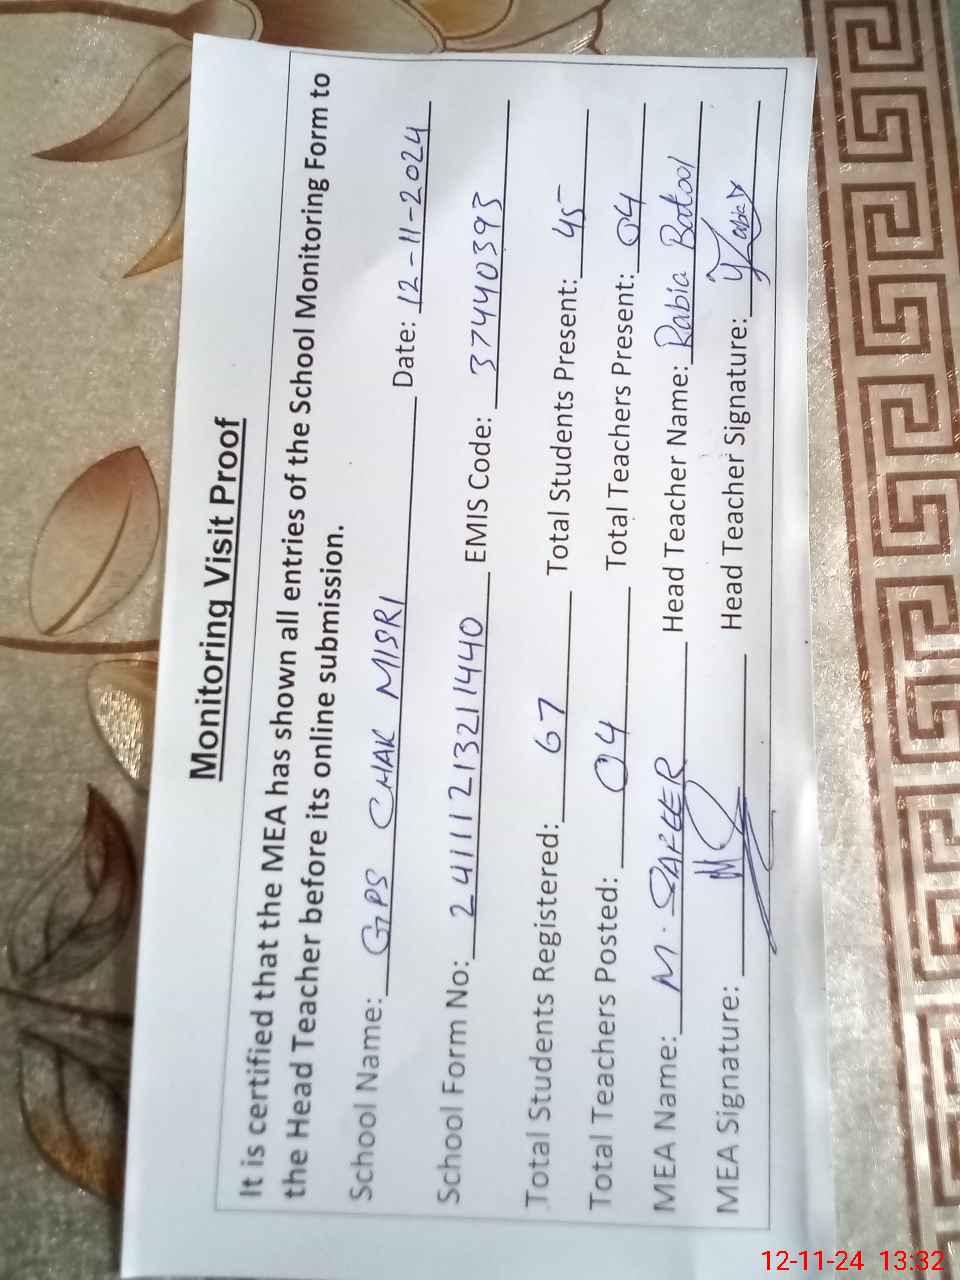 Monitoring Visit Proof
It is certified that the MEA has shown all entries of the School Monitoring Form to
the Head Teacher before its online submission.
School Name: GPS CHAK MISRI Date: 12-11-2024
School Form No: 24111213211440 EMIS Code: 37440393
Total Students Registered: 67 Total Students Present: 45
Total Teachers Posted: 04 Total Teachers Present: 04
MEA Name: M. SAFEER Head Teacher Name: Rabia Batool
MEA Signature: Head Teacher Signature:
12-11-24 13:32